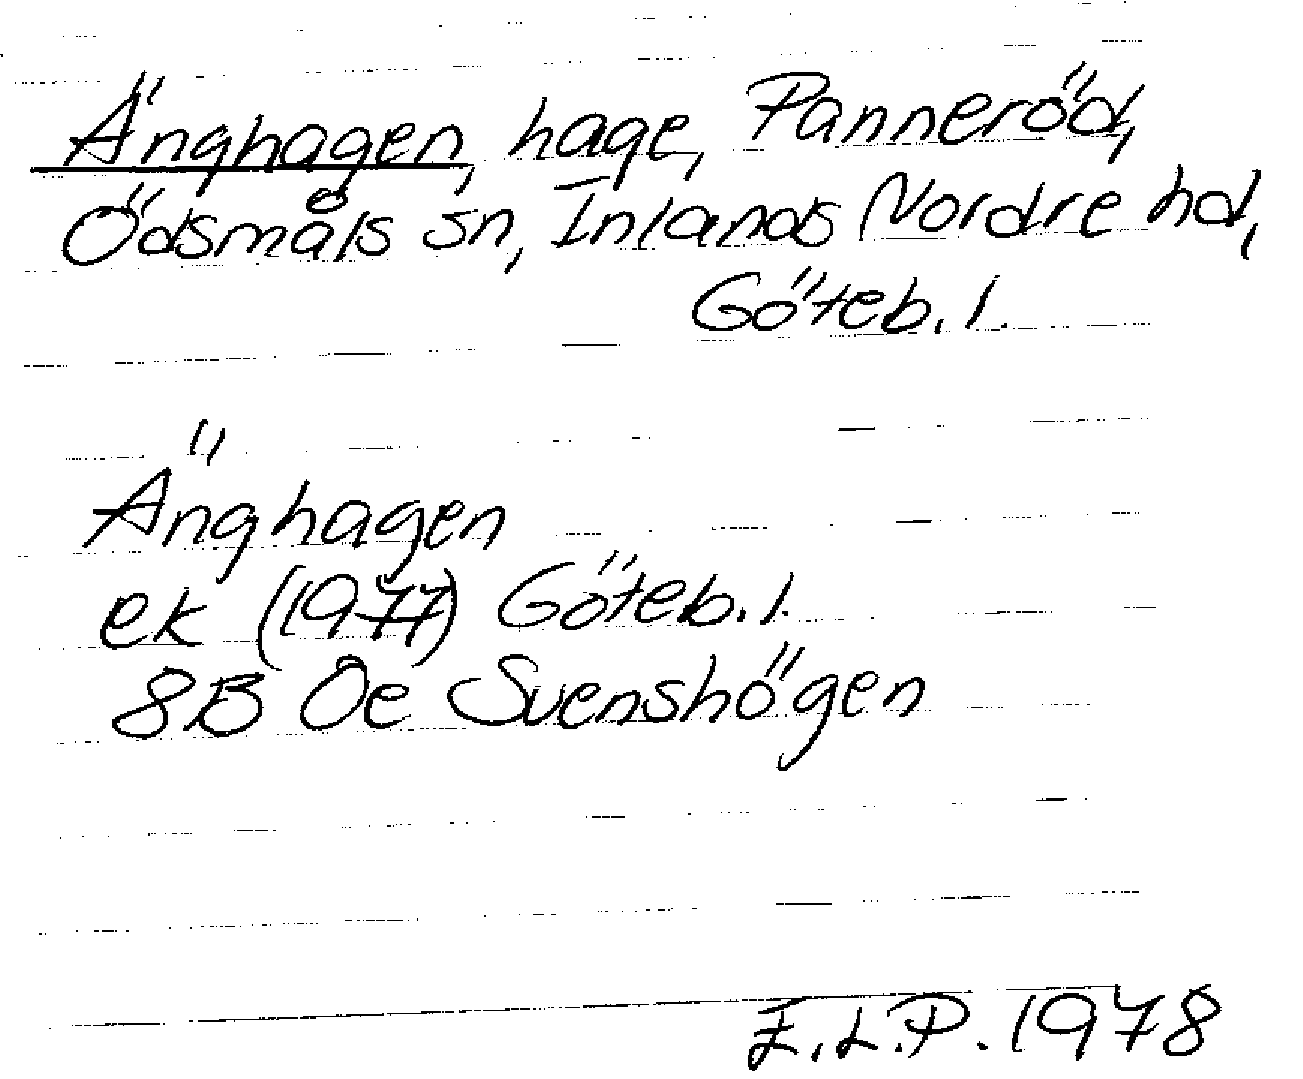 Änghagen, hage, Panneröd,
Ödsmåls sn, Inlands Nordre hd,
Göteb. l.
Änghagen
ek (1977) Göteb. l.
8B 0e Svenshögen
E.L.P. 1978